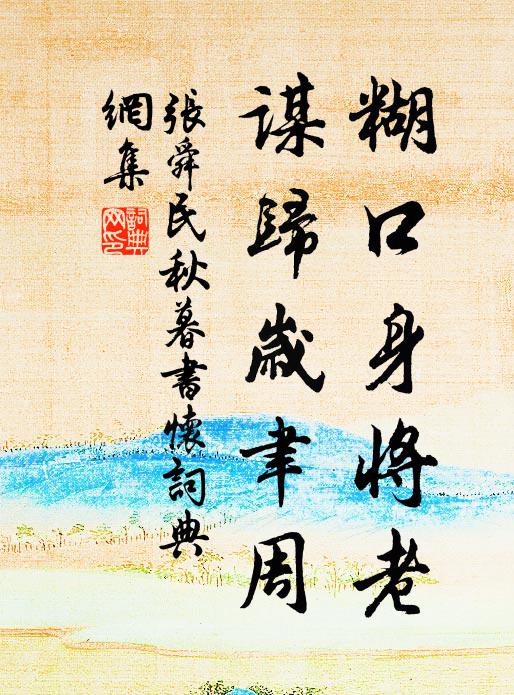 糊口身將老
謀歸歲聿周
張舜民秋暮書懷詞典
網集
詞典
网印